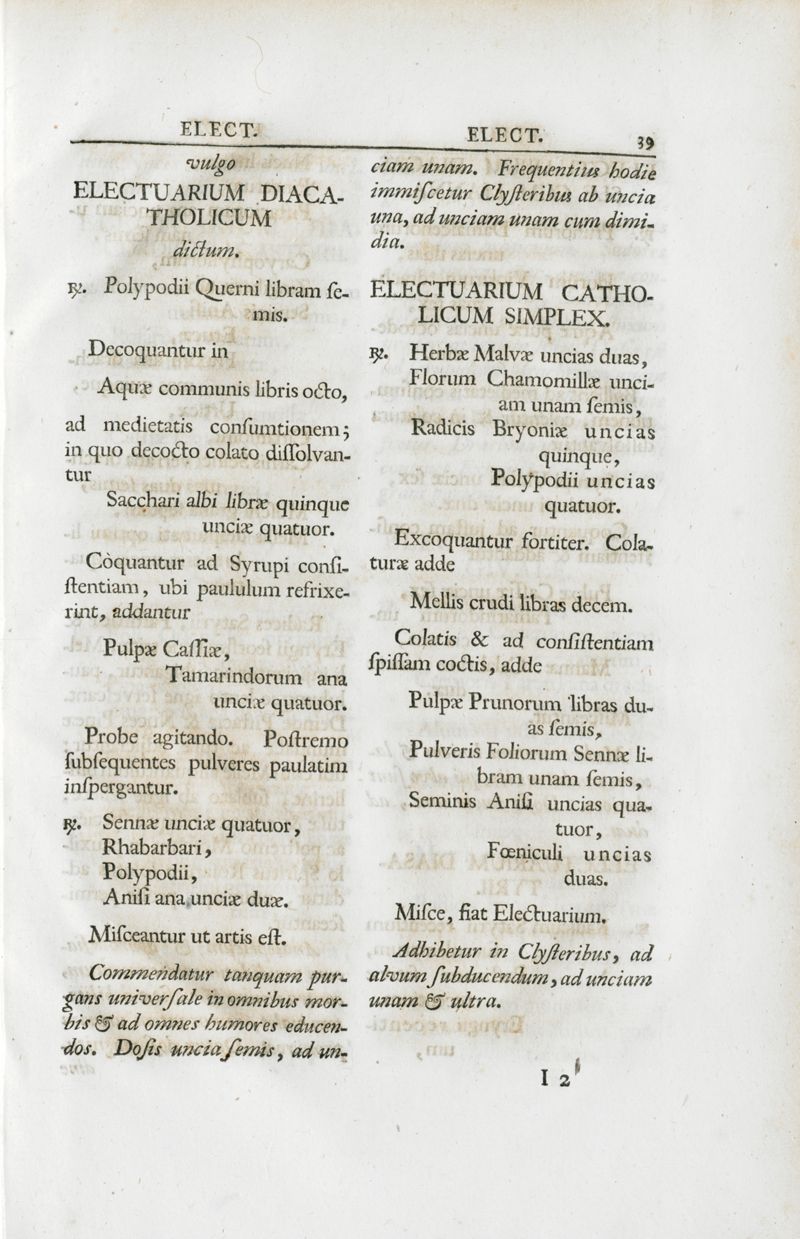 ELECT.
vulgo
ELECTUARIUM DIACA-
THOLICUM
dictum.
℞. Polypodii Querni libram ſe-
mis.
Decoquantur in
Aquæ communis libris octo,
ad medietatis conſumtionem;
in quo decocto colato diſſolvan-
tur
Sacchari albi libræ quinque
unciæ quatuor.
Coquantur ad Syrupi conſi-
ſtentiam, ubi paululum refrixe-
rint, addantur
Pulpæ Caſſiæ,
Tamarindorum ana
unciæ quatuor.
Probe agitando. Poſtremo
ſubſequentes pulveres paulatim
inſpergantur.
℞. Sennæ unciæ quatuor,
Rhabarbari,
Polypodii,
Aniſi ana unciæ duæ.
Miſceantur ut artis eſt.
Commendatur tanquam pur-
gans univerſale in omnibus mor-
bis & ad omnes humores educen-
dos. Doſis uncia ſemis, ad un-
ELECT. 39
ciam unam. Frequentius hodie
immiſcetur Clyſteribus ab uncia
una, ad unciam unam cum dimi-
dia.
ELECTUARIUM CATHO-
LICUM SIMPLEX.
℞. Herbæ Malvæ uncias duas,
Florum Chamomillæ unci-
am unam ſemis,
Radicis Bryoniæ uncias
quinque,
Polypodii uncias
quatuor.
Excoquantur fortiter. Cola-
turæ adde
Mellis crudi libras decem.
Colatis & ad conſiſtentiam
ſpiſſam coctis, adde
Pulpæ Prunorum libras du-
as ſemis,
Pulveris Foliorum Sennæ li-
bram unam ſemis,
Seminis Aniſi uncias qua-
tuor,
Fœniculi uncias
duas.
Miſce, fiat Electuarium.
Adhibetur in Clyſteribus, ad
alvum ſubducendum, ad unciam
unam & ultra.
I 2